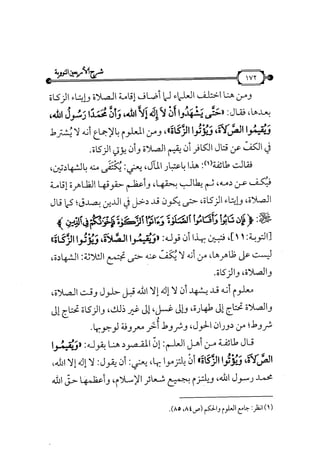 شرح الأربعين النووية
١٧٢
ومن هنا اختلف العلماء لما أضاف إقامة الصلاة وإيتاء الزكاة
بعدها، فقال: «حَتَّى يَشْهَدُوا أَنْ لاَ إِلَهَ إِلاَّ الله، وَأَنَّ مُحَمَّدًا رَسُولُ الله،
وَيُقِيمُوا الصَّلاَةَ، وَيُؤْتُوا الزَّكَاةَ»، ومن المعلوم بالإجماع أنه لا يُشترط
في الكفّ عن قتال الكافر أن يقيم الصلاة وأن يؤتي الزكاة.
فقالت طائفة(١): هذا باعتبار المآل، يعني: يُكتَفى منه بالشهادتين،
فيكف عن دمه، ثم يطالب بحقها، وأعظم حقوقها الظاهرة إقامة
الصلاة، وإيتاء الزكاة، حتى يكون قد دخل في الدين بصدق؛ كما قال
﴿فَإِن تَابُوا وَأَقَامُوا الصَّلَوٰةَ وَءَاتَوُا الزَّكَوٰةَ فَإِخْوَٰنُكُمْ فِي الدِّينِ﴾
[التوبة: ١١]، فتبين بهذا أن قوله: «وَيُقِيمُوا الصَّلاَةَ، وَيُؤْتُوا الزَّكَاةَ»
ليست على ظاهرها، من أنه لا يُكَفّ عنه حتى تجتمع الثلاثة: الشهادة،
والصلاة، والزكاة.
معلوم أنه قد يشهد أن لا إله إلا الله قبل حلول وقت الصلاة،
والصلاة تحتاج إلى طهارة، وإلى غسل، إلى غير ذلك، والزكاة تحتاج إلى
شروط؛ من دوران الحول، وشروط أُخر معروفة لوجوبها.
قال طائفة من أهل العلم: إنَّ المقصود هنا بقوله: «وَيُقِيمُوا
الصَّلاَةَ، وَيُؤْتُوا الزَّكَاةَ» أن يلتزموا بها، يعني: أن يقول: لا إله إلا الله،
محمد رسول الله، ويلتزم بجميع شعائر الإسلام، وأعظمها حقّ الله
(١) انظر: جامع العلوم والحكم (ص٨٤، ٨٥).